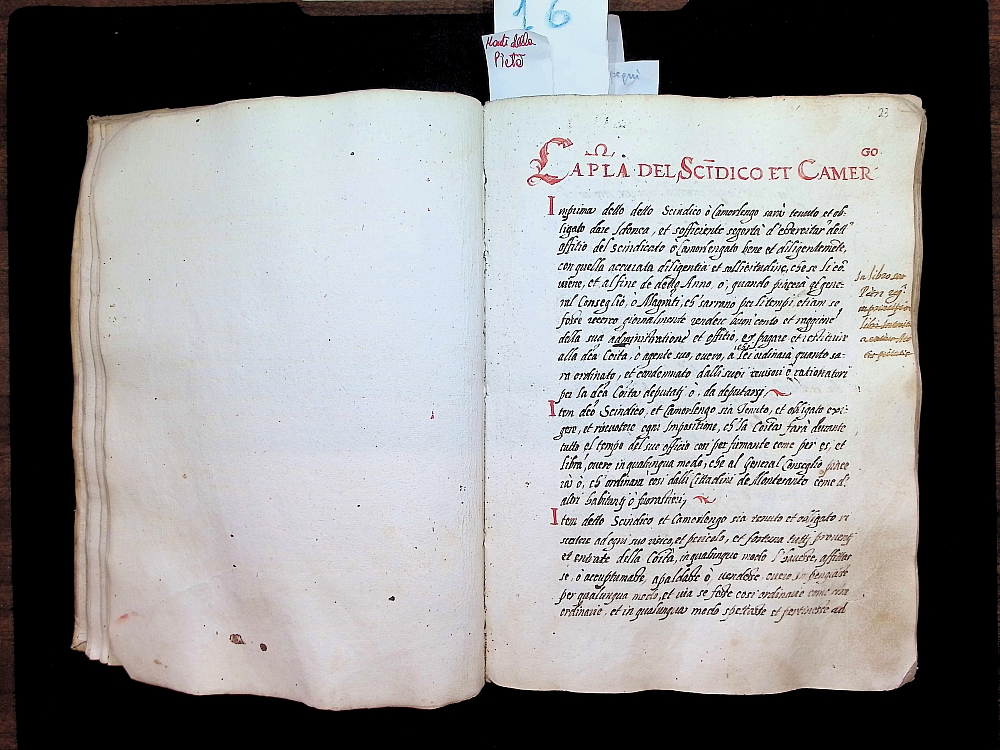 16
Monti della
Pietà
23
CAPLA DEL SCIDICO ET CAMER GO
Imprima detto detto Scindico ò Camorlengo sarà tenuto et ob-
ligato dare Idonea, et sofficiente segortà d'
offitio del Scindicato ò Camorlengato bene et diligentemete,
con quella accurata diligentia et sollicitudine, che se li cō
viene, et al fine de detto Anno, ò, quando piacera al gene-
ral Conseglio, ò Magriti, ch sarrano per li tempi, etiam se
fosse necerco giornalmente rendere buon conto et raggione
della sua administratione et offitio, et pagare et restituir
alla dca Coita, ò agente suo, overo, à chi ordinara quanto sa-
ra ordinato, et condennato dalli suoi revisori ò rationatori
per la dca Coita deputatj ò, da deputarsj
Item dco Scindico, et Camorlengo sia tenuto, et obligato exi-
gere, et riscotere ogni Impositione, ch la Coita farà durante
tutto el tempo del suo officio cosi per firmante come per es, et
libra, overo in qualunqua modo, che al General Conseglio piace
rà ò, ch ordinarà cosi dalli Cittadini de Monteranto come d'
altri habitantj ò forrastieri,
Item detto Scindico et Camorlengo sia tenuto et obligato ri
scotere ad ogni suo risico, et pericolo, et fortuna tuttj proventj
et entrate della Coita, in qualunque modo l'havesse, affittas
se, ò accuptumasse, apaldasse ò vendesse overo
per qualunqua modo, et via se fosse cosi ordinarie come
ordinarie, et in qualunqua modo spettasse et pertinesse ad
In libro